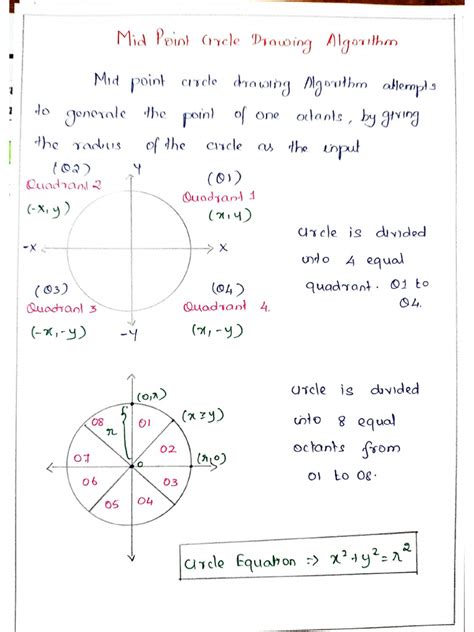 Mid Point Circle Drawing Algorithm
Mid point circle drawing Algorithm attempts
to generate the point of one octants, by giving
the radius of the circle as the input
(Q2) Y (Q1)
Quadrant 2 Quadrant 1
(-x, y) (x, y)
-X X
(Q3) (Q4)
Quadrant 3 Quadrant 4.
(-x, -y) -Y (x, -y)
circle is divided
into 4 equal
quadrant. Q1 to
Q4.
(0, r)
08 01 (x ≥ y)
r
07 02
0 (r, 0)
06 03
05 04
circle is divided
into 8 equal
octants from
01 to 08.
Circle Equation => x² + y² = r²